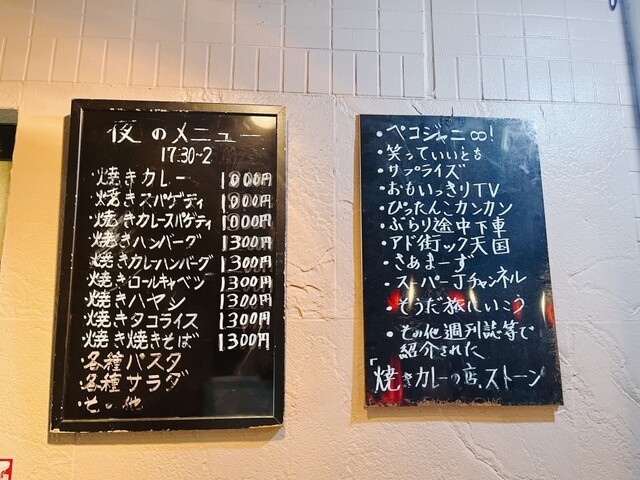 夜のメニュー
17:30~2
焼きカレー 1000円
焼きスパゲティ 1000円
焼きカレースパゲティ 1000円
焼きハンバーグ 1300円
焼きカレーハンバーグ 1300円
焼きロールキャベツ 1300円
焼きハヤシ 1300円
焼きタコライス 1300円
焼き焼きそば 1300円
・各種パスタ
・各種サラダ
・その他
・ペコジャニ∞!
・笑っていいとも
・サプライズ
・おもいっきりTV
・ぴったんこカンカン
・ぶらり途中下車
・アド街ック天国
・さぁまーず
・スーパーJチャンネル
・そうだ旅にいこう
・その他週刊誌等で
紹介された
「焼きカレーの店、ストーン